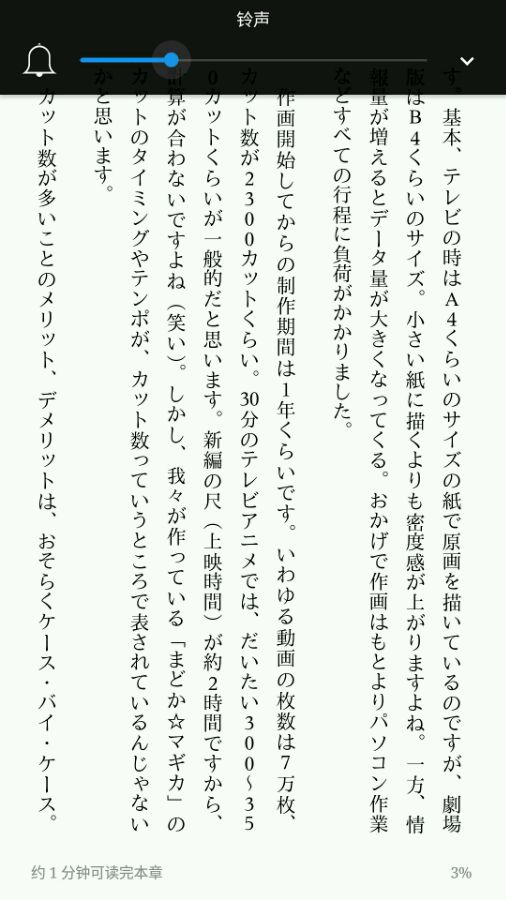 铃声
す。基本、テレビの時はA4くらいのサイズの紙で原画を描いているのですが、劇場
版はB4くらいのサイズ。小さい紙に描くよりも密度感が上がりますよね。一方、情
報量が増えるとデータ量が大きくなってくる。おかげで作画はもとよりパソコン作業
などすべての行程に負荷がかかりました。
作画開始してからの制作期間は1年くらいです。いわゆる動画の枚数は7万枚、
カット数が2300カットくらい。30分のテレビアニメでは、だいたい300〜35
0カットくらいが一般的だと思います。新編の尺（上映時間）が約2時間ですから、
計算が合わないですよね（笑い）。しかし、我々が作っている「まどか☆マギカ」の
カットのタイミングやテンポが、カット数っていうところで表されているんじゃない
かと思います。
カット数が多いことのメリット、デメリットは、おそらくケース・バイ・ケース。
约 1 分钟可读完本章
3%